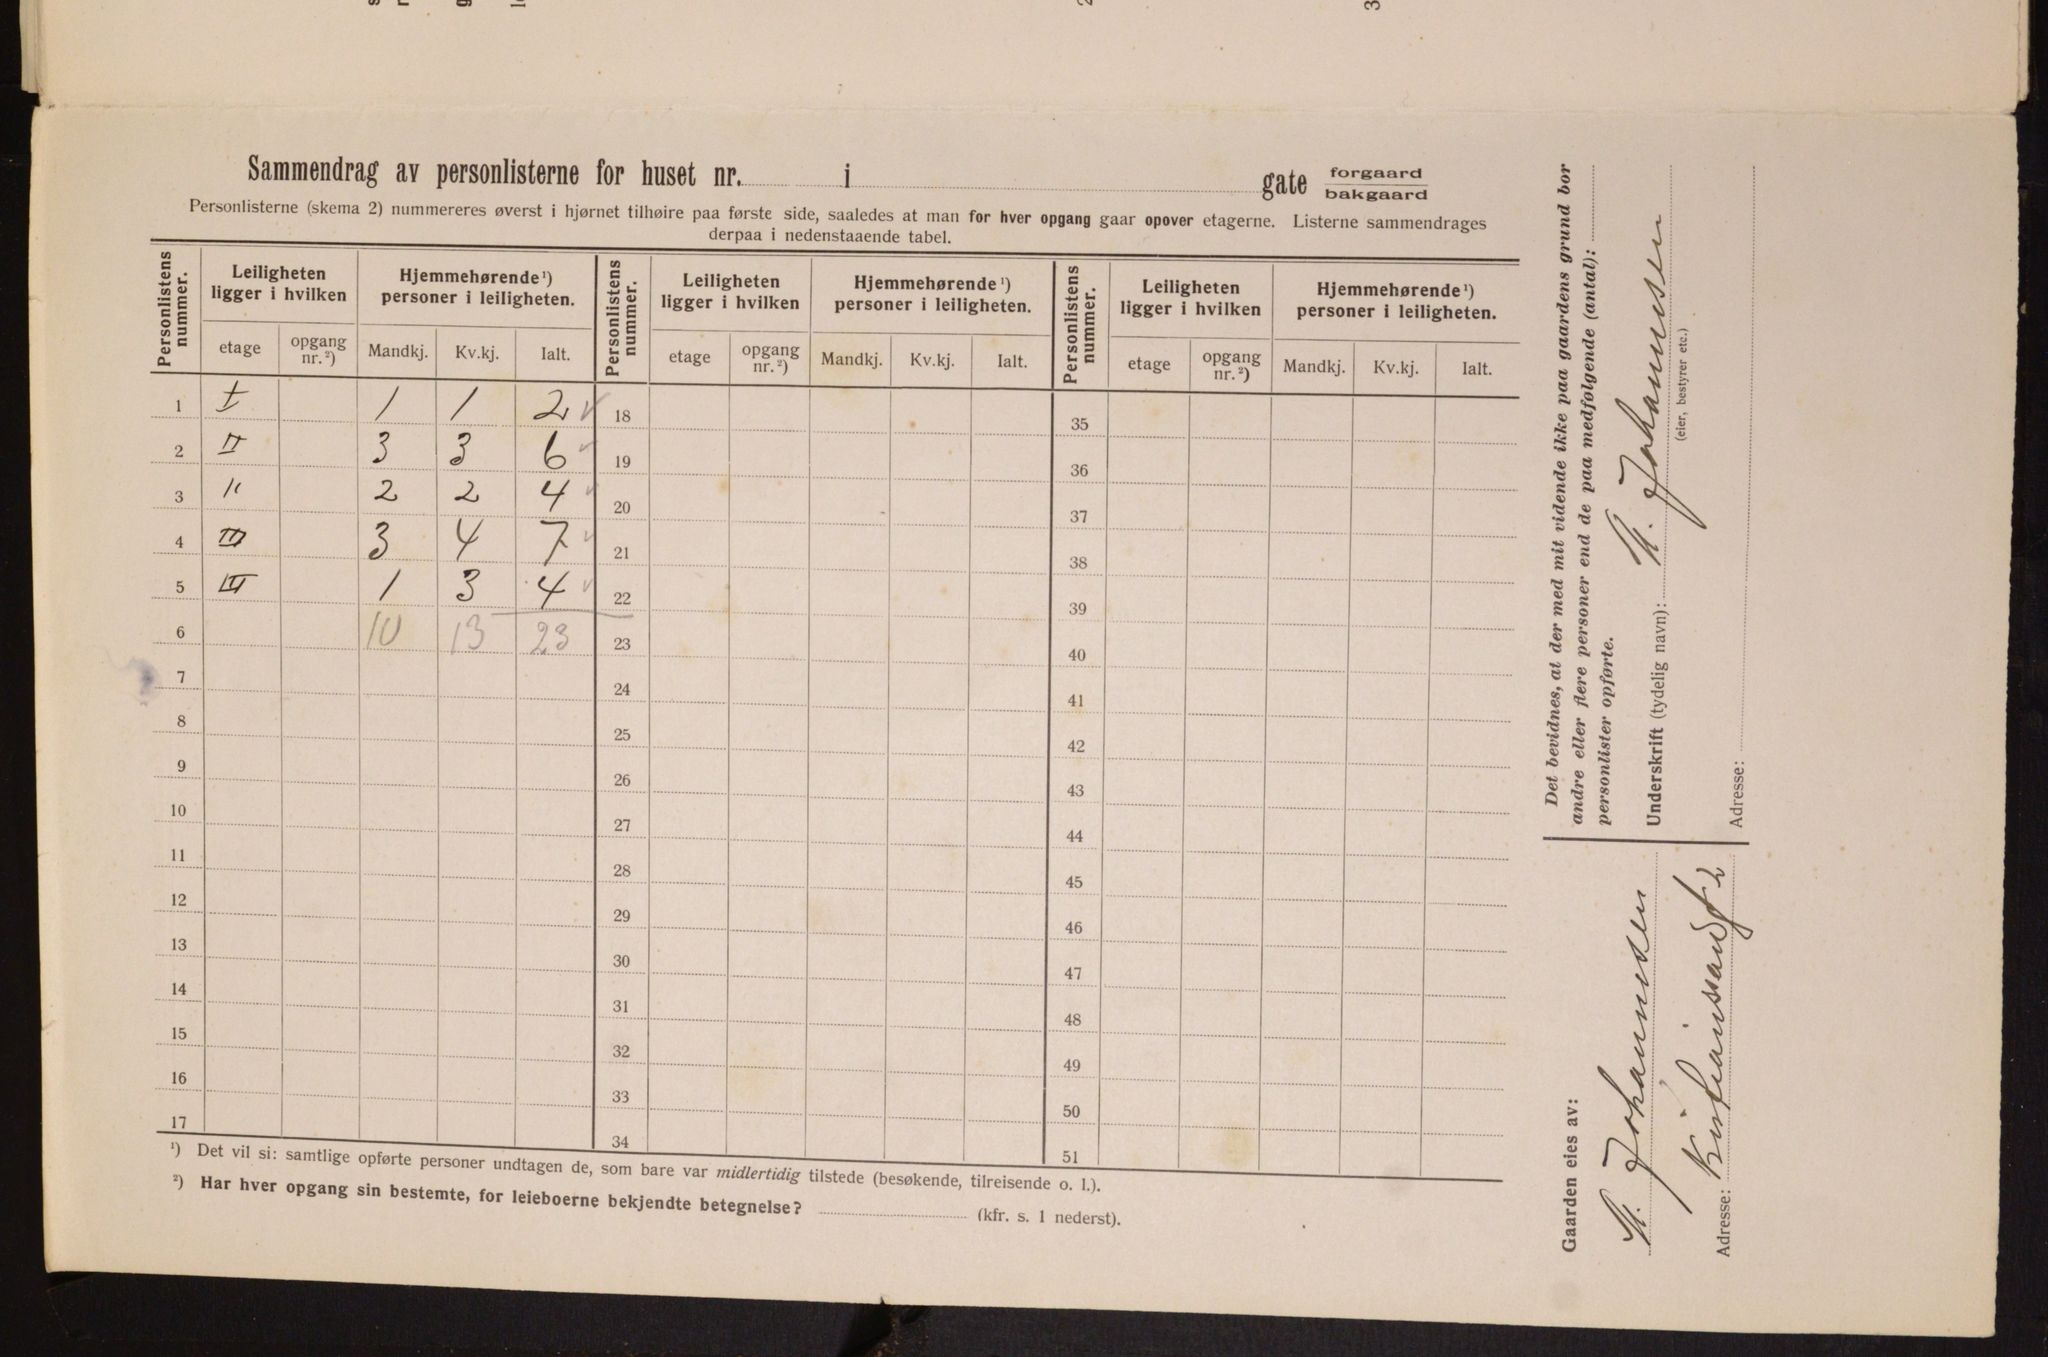 Sammendrag av personlisterne for huset nr. i gate forgaard bakgaard
Personlisterne (skema 2) nummereres øverst i hjørnet tilhøire paa første side, saaledes at man for hver opgang gaar opover etagerne. Listerne sammendrages
derpaa i nedenstaaende tabel.
Personlistens nummer. Leiligheten ligger i hvilken Hjemmehørende¹) personer i leiligheten. Personlistens nummer. Leiligheten ligger i hvilken Hjemmehørende¹) personer i leiligheten. Personlistens nummer. Leiligheten ligger i hvilken Hjemmehørende¹) personer i leiligheten.
etage opgang nr.²) Mandkj. Kv.kj. Ialt. etage opgang nr.²) Mandkj. Kv.kj. Ialt. etage opgang nr.²) Mandkj. Kv.kj. Ialt.
1 I 1 1 2 ✓ 18 35
2 II 3 3 6 ✓ 19 36
3 " 2 2 4 ✓ 20 37
4 III 3 4 7 ✓ 21 38
5 III 1 3 4 ✓ 22 39
6 10 13 23 23 40
7 24 41
8 25 42
9 26 43
10 27 44
11 28 45
12 29 46
13 30 47
14 31 48
15 32 49
16 33 50
17 34 51
¹) Det vil si: samtlige opførte personer undtagen de, som bare var midlertidig tilstede (besøkende, tilreisende o. l.).
²) Har hver opgang sin bestemte, for leieboerne bekjendte betegnelse? (kfr. s. 1 nederst).
Gaarden eies av:
Johannsen
Adresse: Kristianssandg 2
Det bevidnes, at der med mit vidende ikke paa gaardens grund bor
andre eller flere personer end de paa medfølgende (antal):
personlister opførte.
Underskrift (tydelig navn): Johannsen
(eier, bestyrer etc.)
Adresse: